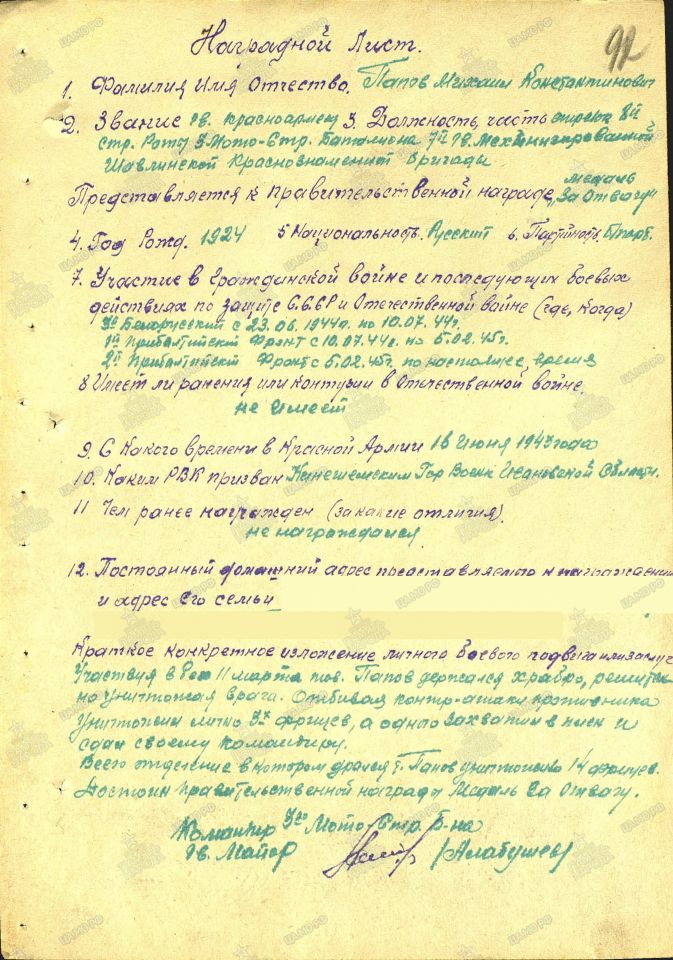 92
Наградной Лист.
1. Фамилия Имя Отчество. Папов Михаил Константинович
2. Звание гв. Красноармеец 3. Должность, часть стрелок 8й
стр. Роты 3 Мото-Стр. Батальона 7й гв. Механизированной
Шавлинской Краснознаменной бригады
Представляется к правительственной награде, медаль За Отвагу
4. Год Рожд. 1924 5 Национальность. Русский 6. Партийность. б/парт.
7. Участие в Гражданской войне и последующих боевых
действиях по защите С.С.С.Р и Отечественной войне (где, когда)
3й Белорусский с 23.06.1944г. по 10.07.44г.
1й Прибалтийский Фронт с 10.07.44г. по 5.02.45г.
2й Прибалтийский Фронт с 5.02.45г. по настоящее, время
8 Имеет ли ранения или контузии в Отечественной войне.
не имеет
9. С какого времени в Красной Армии 16 июня 1943 года
10. Каким РВК призван Кинешемским Гор Воен Ивановской Области.
11 Чем ранее награжден (за какие отличия).
не награждался
12. Постоянный домашний адрес представляемого к награждению
и адрес его семьи
Краткое конкретное изложение личного боевого подвига или заслуг
Участвуя в бою 11 марта тов. Папов держался храбро, решитель-
но уничтожая врага. Отбивая контр-атаки противника
уничтожил лично 3х фрицев, а одного захватил в плен и
сдал своему командиру.
Всего отделение в котором дрался т. Папов уничтожило 14 фрицев.
Достоин правительственной награды Медаль За Отвагу.
Командир 3го Мото Стр. б-на
гв. Майор /Алабушев/
ЦАМО.РФ